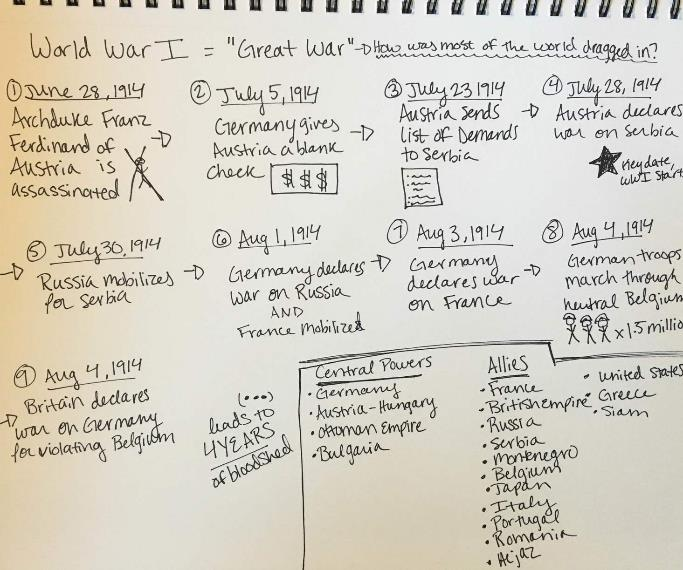 World War I = "Great War" → How was most of the world dragged in?
① June 28, 1914
Archduke Franz
Ferdinand of
Austria is
assassinated
② July 5, 1914
Germany gives
Austria a blank
check
$ $ $
③ July 23 1914
Austria sends
list of Demands
to Serbia
④ July 28, 1914
Austria declares
war on Serbia
Key date,
WWI Start
⑤ July 30, 1914
Russia mobilizes
for Serbia
⑥ Aug 1, 1914
Germany declares
war on Russia
AND
France mobilized
⑦ Aug 3, 1914
Germany
declares war
on France
⑧ Aug 4, 1914
German troops
march through
neutral Belgium
x 1.5 millio
⑨ Aug 4, 1914
Britain declares
war on Germany
for violating Belgium
(...)
leads to
4 YEARS
of bloodshed
Central Powers
• Germany
• Austria-Hungary
• Ottoman Empire
• Bulgaria
Allies
• France
• British empire
• Russia
• Serbia
• montenegro
• Belgium
• Japan
• Italy
• Portugal
• Romania
• Hejaz
• United States
• Greece
• Siam